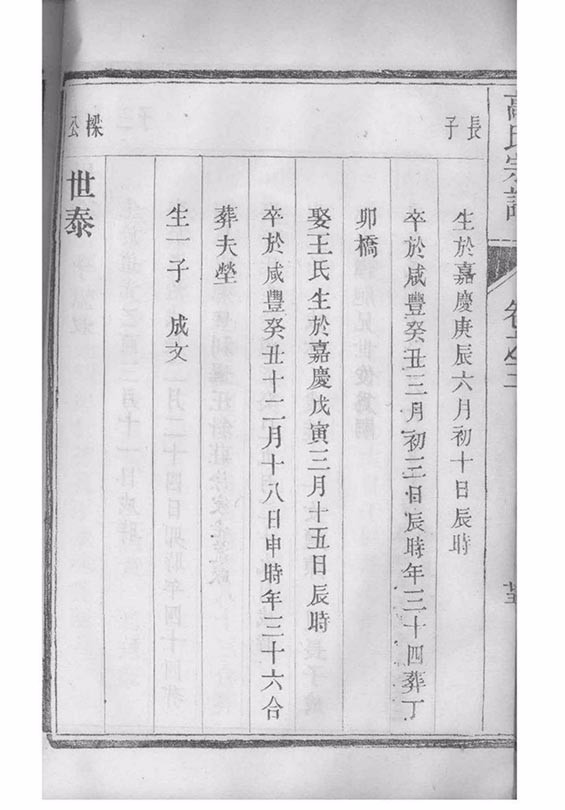 高氏宗譜
卷之三
長子
生於嘉慶庚辰六月初十日辰時
卒於咸豐癸丑三月初三日辰時年三十四葬丁
卯橋
娶王氏生於嘉慶戊寅三月十五日辰時
卒於咸豐癸丑十二月十八日申時年三十六合
葬夫塋
生一子　成文
樑公
世泰